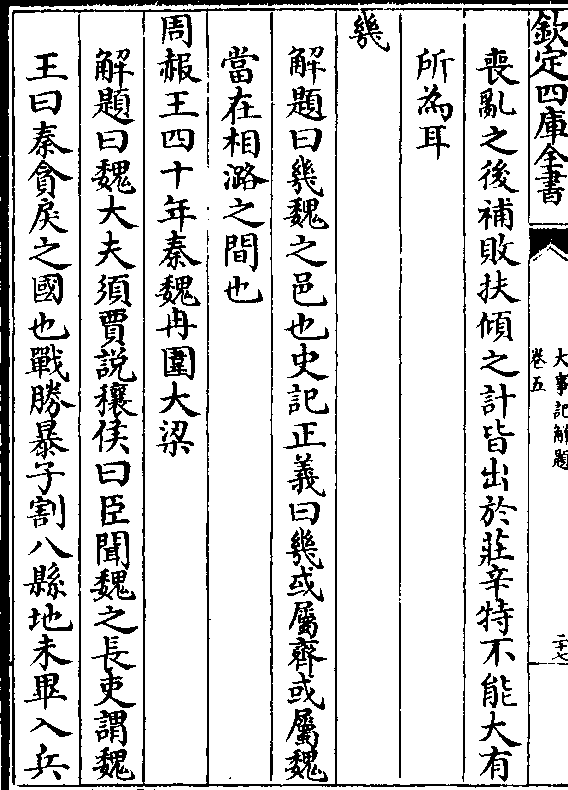 欽定四庫全書
大事記解題
卷五
二十七
喪亂之後補敗扶傾之計皆出於莊辛特不能大有
所為耳
幾
解題曰幾魏之邑也史記正義曰幾或屬齊或屬魏
當在相潞之間也
周赧王四十年秦魏冉圍大梁
解題曰魏大夫須賈説穰侯曰臣聞魏之長吏謂魏
王曰秦貪戾之國也戰勝暴子割八縣地未畢入兵